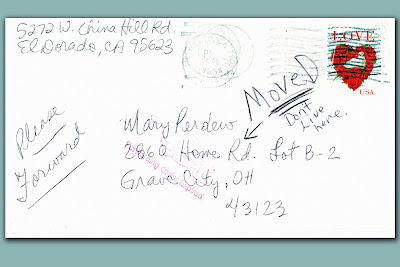 5272 W. China Hill Rd.
El Dorado, CA 95623
LOVE
USA
MOVED
Don't
Live
here.
Please
Forward
Mary Perdew
2860 Home Rd. Lot B-2
Grave City, OH
43123